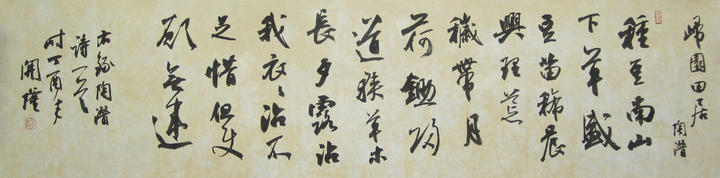 歸園田居
陶潛
種豆南山
下草盛
豆苗稀晨
興理荒
穢帶月
荷鋤歸
道狹草木
長夕露沾
我衣衣沾不
足惜但使
願無違
右錄陶潛
詩一首
時丁酉夫
開璞